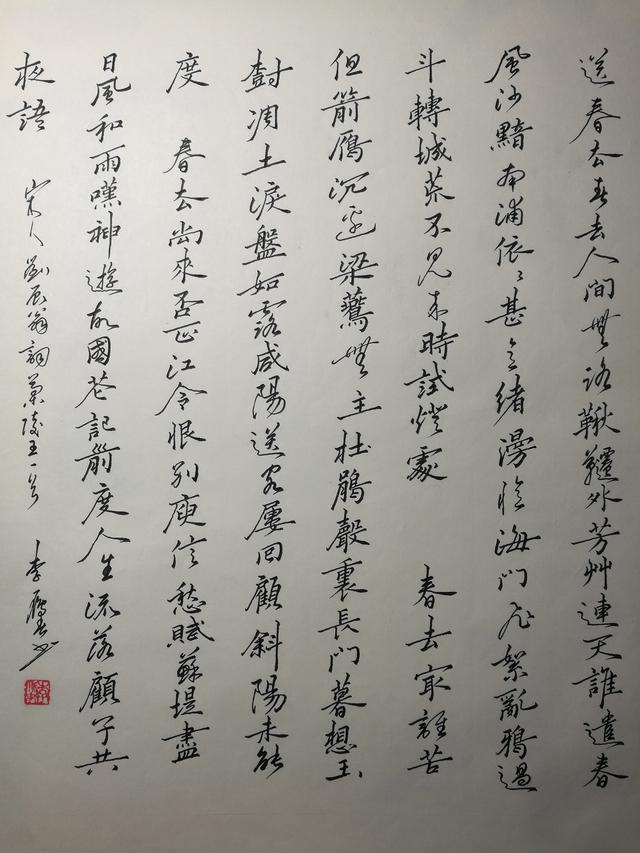 送春去春去人間無路鞦韆外芳艸連天誰遣春
風沙黯南浦依〻甚意緒漫憶海門飛絮亂鴉過
斗轉城荒不見來時試燈處　春去最誰苦
但箭鴈沉邊梁鷰無主杜鵑聲裏長門暮想玉
樹凋土淚盤如露咸陽送客屢回顧斜陽未能
度　春去尚來否正江令恨別庾信愁賦蘇堤盡
日風和雨嘆神遊故國花記前度人生流落顧子共
夜語　宋人劉辰翁詞蘭陵王一首　李